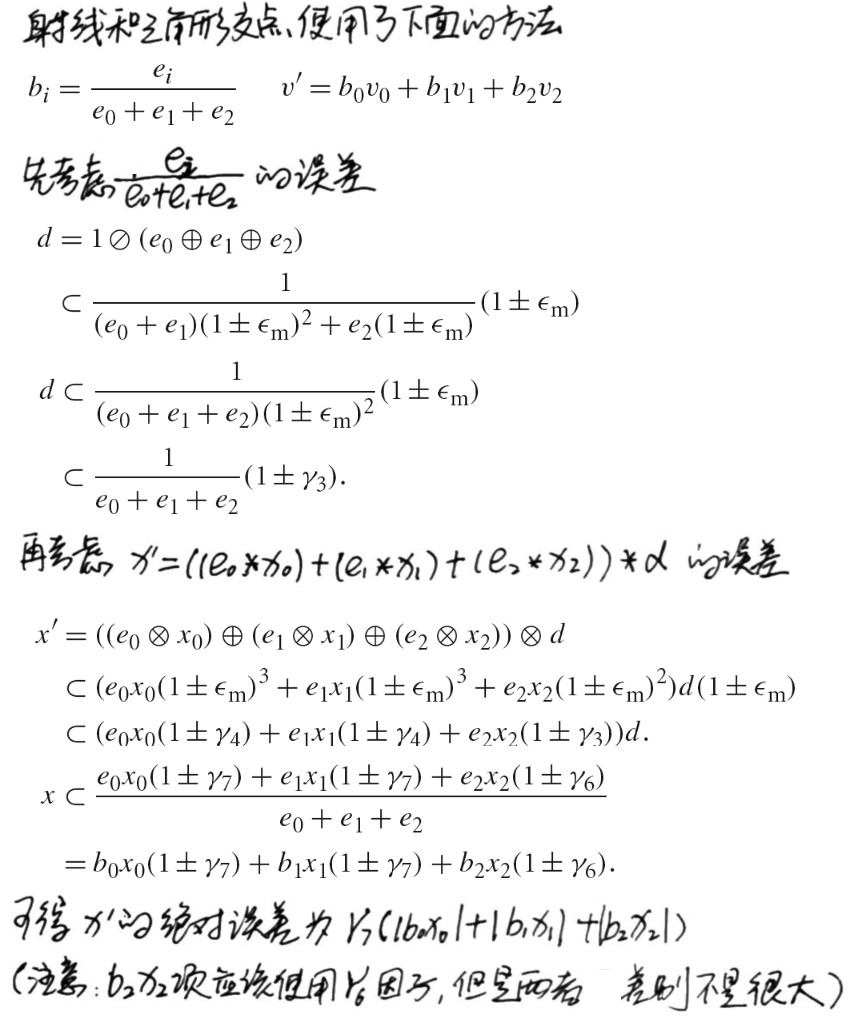 射线和三角形交点、使用了下面的方法
b_i = e_i / (e_0 + e_1 + e_2)    v′ = b_0v_0 + b_1v_1 + b_2v_2
先考虑 e_i / (e_0+e_1+e_2) 的误差
d = 1 ⊘ (e_0 ⊕ e_1 ⊕ e_2)
⊂ 1 / ((e_0 + e_1)(1 ± ϵ_m)^2 + e_2(1 ± ϵ_m)) (1 ± ϵ_m)
d ⊂ 1 / ((e_0 + e_1 + e_2)(1 ± ϵ_m)^2) (1 ± ϵ_m)
⊂ 1 / (e_0 + e_1 + e_2) (1 ± γ_3).
再考虑 x′=((e_0*x_0)+(e_1*x_1)+(e_2*x_2))*d 的误差
x′ = ((e_0 ⊗ x_0) ⊕ (e_1 ⊗ x_1) ⊕ (e_2 ⊗ x_2)) ⊗ d
⊂ (e_0x_0(1 ± ϵ_m)^3 + e_1x_1(1 ± ϵ_m)^3 + e_2x_2(1 ± ϵ_m)^2)d(1 ± ϵ_m)
⊂ (e_0x_0(1 ± γ_4) + e_1x_1(1 ± γ_4) + e_2x_2(1 ± γ_3))d.
x ⊂ (e_0x_0(1 ± γ_7) + e_1x_1(1 ± γ_7) + e_2x_2(1 ± γ_6)) / (e_0 + e_1 + e_2)
= b_0x_0(1 ± γ_7) + b_1x_1(1 ± γ_7) + b_2x_2(1 ± γ_6).
可得 x′的绝对误差为 γ_7(|b_0x_0|+|b_1x_1|+|b_2x_2|)
(注意:b_2x_2项应该使用γ_6因子,但是两者 差别不是很大)